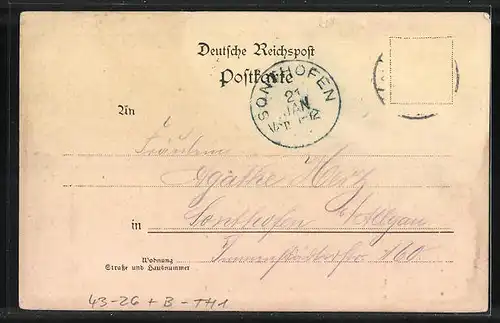 Deutsche Reichspost
Postkarte
SONTHOFEN
21
JAN
11-12
An
Fräulein
Agathe Herz
in Sonthofen i/Allgäu
Wohnung
Straße und Hausnummer
Immenstädterstr. 160
43-26 + B - TH1